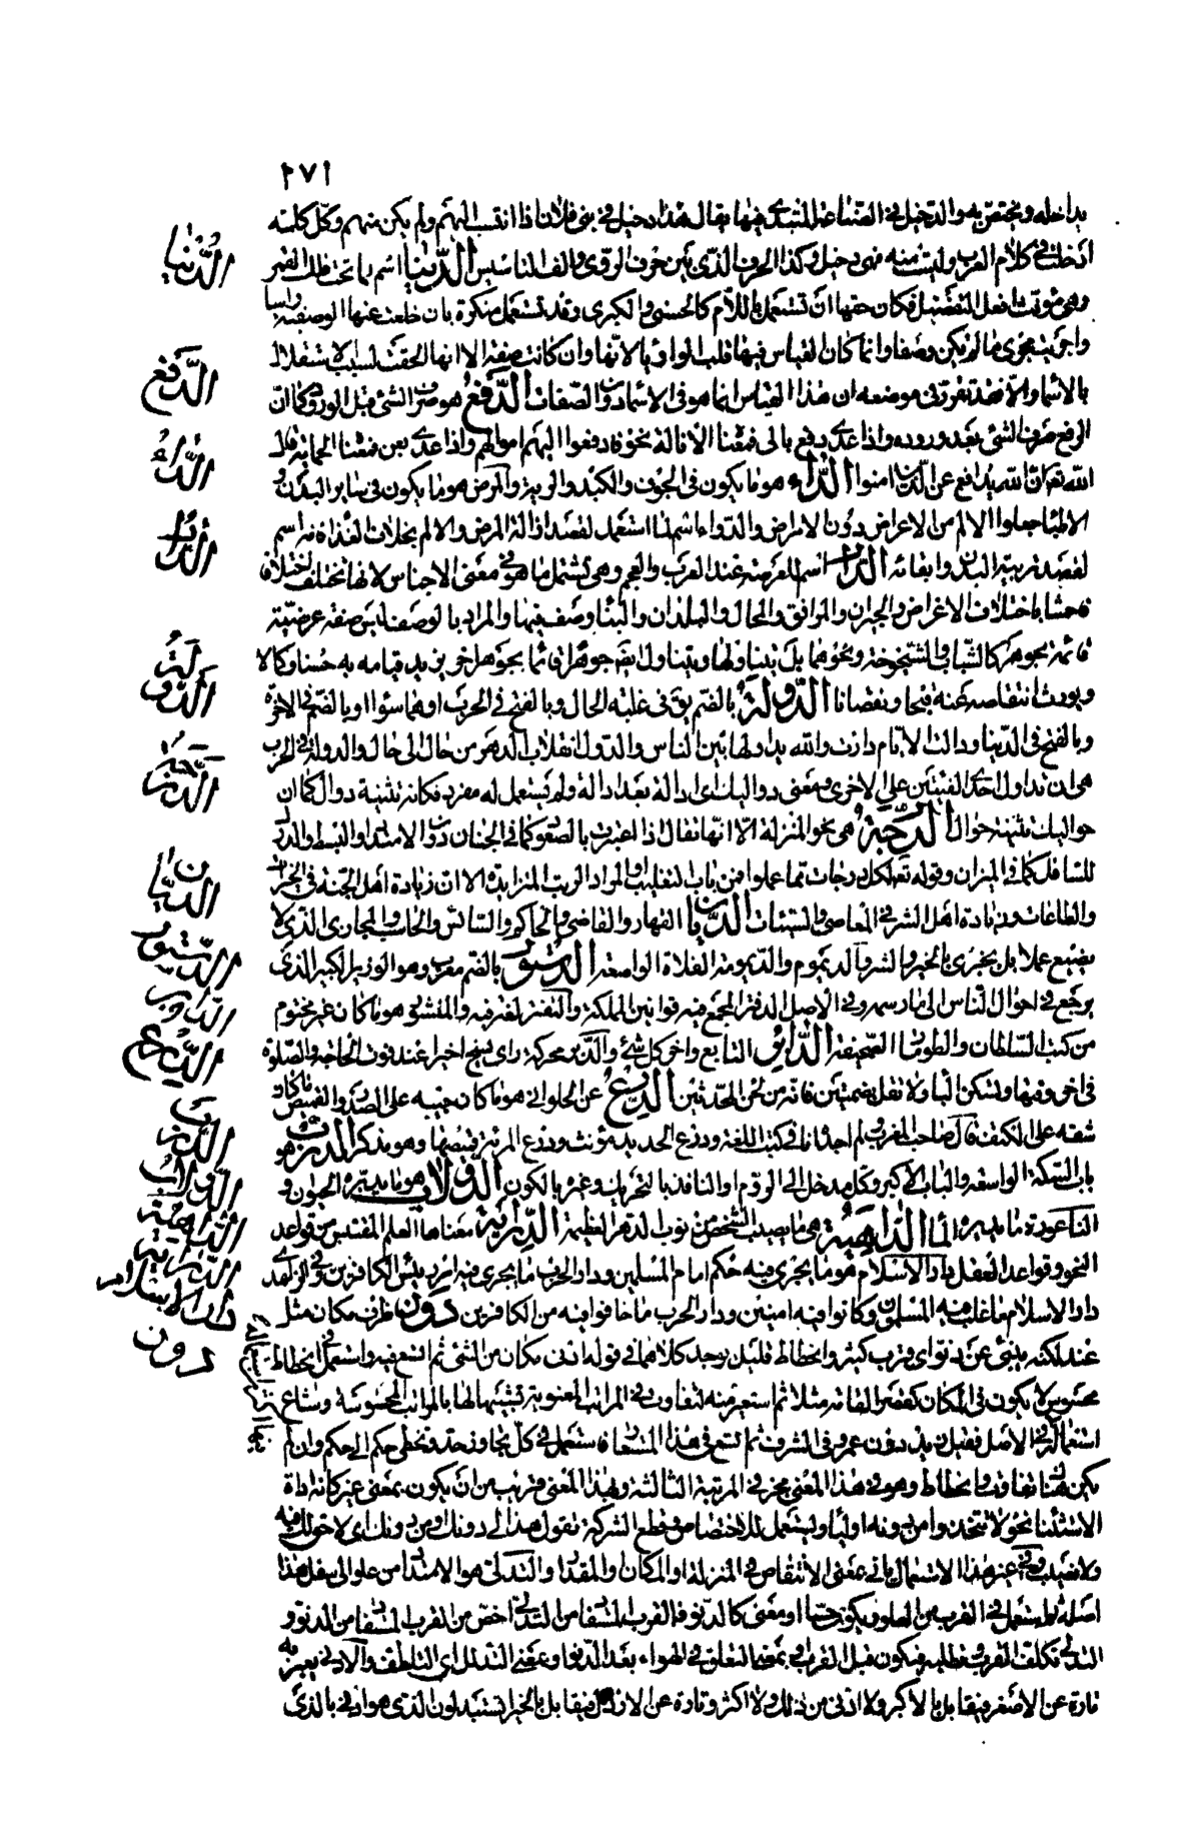 ٢٧١
يداخله ويختص به والدخيل في الصناعة المبتدئ فيها يقال هذا دخيل في بني فلان اذا انتسب اليهم ولم يكن منهم وكل كلمة
ادخلت في كلام العرب وليست منه فهي دخيل وكذا الحرف الذي بين حرف الروى والف التاسيس الدُّنيا اسم لما تحت فلك القمر
وهى مؤنث افعل التفضيل فكان حقها ان تستعمل باللام كالحسنى والكبرى وقد تستعمل منكرة بان خلعت عنها الوصفية راسا
واجريت مجرى ما لم يكن وصفا وانما كان القياس فيها قلب الواو ياء لانها وان كانت صفة الا انها الحقت بسبب الاستقلال
بالاسماء والا فقد تقرر في موضعه ان هذا القياس انما هو في الاسماء دون الصفات الدَّفع هو صرف الشئ قبل الورود كما ان
الرفع صرف الشئ بعد وروده واذا عدى دفع بالى فمعناه الانالة نحو فادفعوا اليهم اموالهم واذا عدى بعن فمعناه الحماية قال
الله تعالى ان الله يدافع عن الذين امنوا الدَّاء هو ما يكون في الجوف والكبد والرية والمرض هو ما يكون في سائر البدن و
الاطباء جعلوا الالم من الاعراض دون الامراض والدواء اسم لما استعمل لقصد ازالة المرض والالم بخلاف الغذاء فانه اسم
لقصد تربية البدن وابقائه الدار اسم للعرصة عند العرب والعجم وهى تشمل ما هو في معنى الاجناس لانها تختلف اختلافا
فاحشا باختلاف الاغراض والجيران والمرافق والمحال والبلدان والبناء وصف فيها والمراد بالوصف ليس صفة عرضية
قائمة بجوهر كالشباب والشيخوخة ونحوهما بل يتناولها ويتناول ايضا جوهرا قائما بجوهر اخر يزيد قيامه به حسنا وكمالا
ويورث انتقاصه عنه قبحا ونقصانا الدَّولة بالضم يق في غلبة الحال وبالفتح في الحرب او هما سواء او بالضم في الاخرة
وبالفتح في الدنيا ودالت الايام دارت والله يداولها بين الناس والدول انقلاب الدهر من حال الى حال والدولة في الحرب
هى ان تداول احدى الفئتين على الاخرى ومعنى دواليك اى ادالة بعد ادالة ولم يستعمل له مفرد فكانه تثنية دوال كما ان
حواليك تثنية حوال الدَّرجة هى نحو المنزلة الا انها تقال اذا اعتبرت بالصعود كما في الجنان دون الامتداد والبسط والدرك
للسافل كما في النيران وقوله تعالى لكل درجات مما عملوا من باب التغليب او المراد الرتب المتزايدة الا ان زيادة اهل الجنة في الخيرات
والطاعات وزيادة اهل الشر في المعاصى والسيئات الدَّيان القهار والقاضى والحاكم والسائس والحاسب والمجازى الذي لا
يضيع عملا بل يجزى بالخير والشر والديموم والديمومة الفلاة الواسعة الدُّستور بالضم معرب وهو الوزير الكبير الذي
يرجع في احوال الناس الى ما رسمه وفي الاصل الدفتر المجمع فيه قوانين المملكة والمنشور هو ما كان غير مختوم
من كتب السلطان والطومار الصحيفة الدَّابر التابع واخر كل شئ والدبر محركة راى يسنح اخيرا عند فوت الحاجة والصلوة
في اخر وقتها وتسكن الباء ولا تقل بضمتين فانه من لحن المحدثين الدِّرع عن الحلوانى هو ما كان جيبه على الصدر والقميص ما كان
شقه على الكتف قال صاحب المغرب ولم اجد انا في كتب اللغة ودرع الحديد مؤنث ودرع المرئة قميصها وهو مذكر الدرب هو
باب السكة الواسعة والباب الاكبر وكل مدخل الى الروم او النافذ بالتحريك وغيره بالسكون الدولاب هو ما يديره الحيوان و
الناعورة ما يديره الماء الدَّاهية هى ما يصيب الشخص من نوب الدهر العظيمة الدِّراية معناها العلم المقتبس من قواعد
النحو وقواعد العقل دار الاسلام هو ما يجرى فيه حكم امام المسلمين ودار الحرب ما يجرى فيه امر رئيس الكافرين وفي الزاهدى
دار الاسلام ما غلب فيه المسلمون وكانوا فيه امنين ودار الحرب ما خافوا فيه من الكافرين دون ظرف مكان مثل
عند لكنه ينبئ عن دنو اى قرب كثير وانحطاط قليل يوجد كلاهما في قوله ادنى مكان من الشئ ثم اتسع فيه واستعمل في انحطاط
محسوس لا يكون في المكان كقصر القامة مثلا ثم استعير منه لتفاوت في المراتب المعنوية تشبيها لها بالمراتب المحسوسة وشاع
استعماله في الاصل فقيل زيد دون عمرو في الشرف ثم اتسع في هذا المستعار فاستعمل في كل تجاوز حد وتخطى حكم الى حكم وان لم
يكن هناك تفاوت وانحطاط وهو في هذا المعنى مجاز في المرتبة الثالثة وبهذا المعنى قريب من ان يكون بمعنى غير كانه اداة
الاستثناء نحو لا تتخذوا من دونه اولياء ويستعمل للاختصاص وقطع الشركة تقول هذا لى دونك او من دونك اى لا حق لك فيه
ولا نصيب وفي غير هذا الاستعمال ياتى بمعنى الانتقاص في المنزلة او المكان والمقدار والتدلى هو الامتداد من علو الى سفل هذا
اصله ثم استعمل في القرب من العلو ويكون حسا او معنى كالدنو فالقرب المستفاد من التدلى اخص من القرب المستفاد من الدنو و
التدلى تكلف القرب وطلبه فيكون قبل القرب او بمعنى التعلق في الهواء بعد الدنو او بمعنى التدلل اى التلطف والادنى يعبر به
تارة عن الاصغر فيقابل بالاكبر ولا ادنى من ذلك ولا اكثر وتارة عن الارذل فيقابل بالخير اتستبدلون الذي هو ادنى بالذي
الدُّنيا
الدَّفع
الدَّاء
الدار
الدَّولة
الدرجة
الديان
الدستور
الدابر
الدِّرع
الدرب
الدولاب
الداهية
الدراية
دار الاسلام
دون